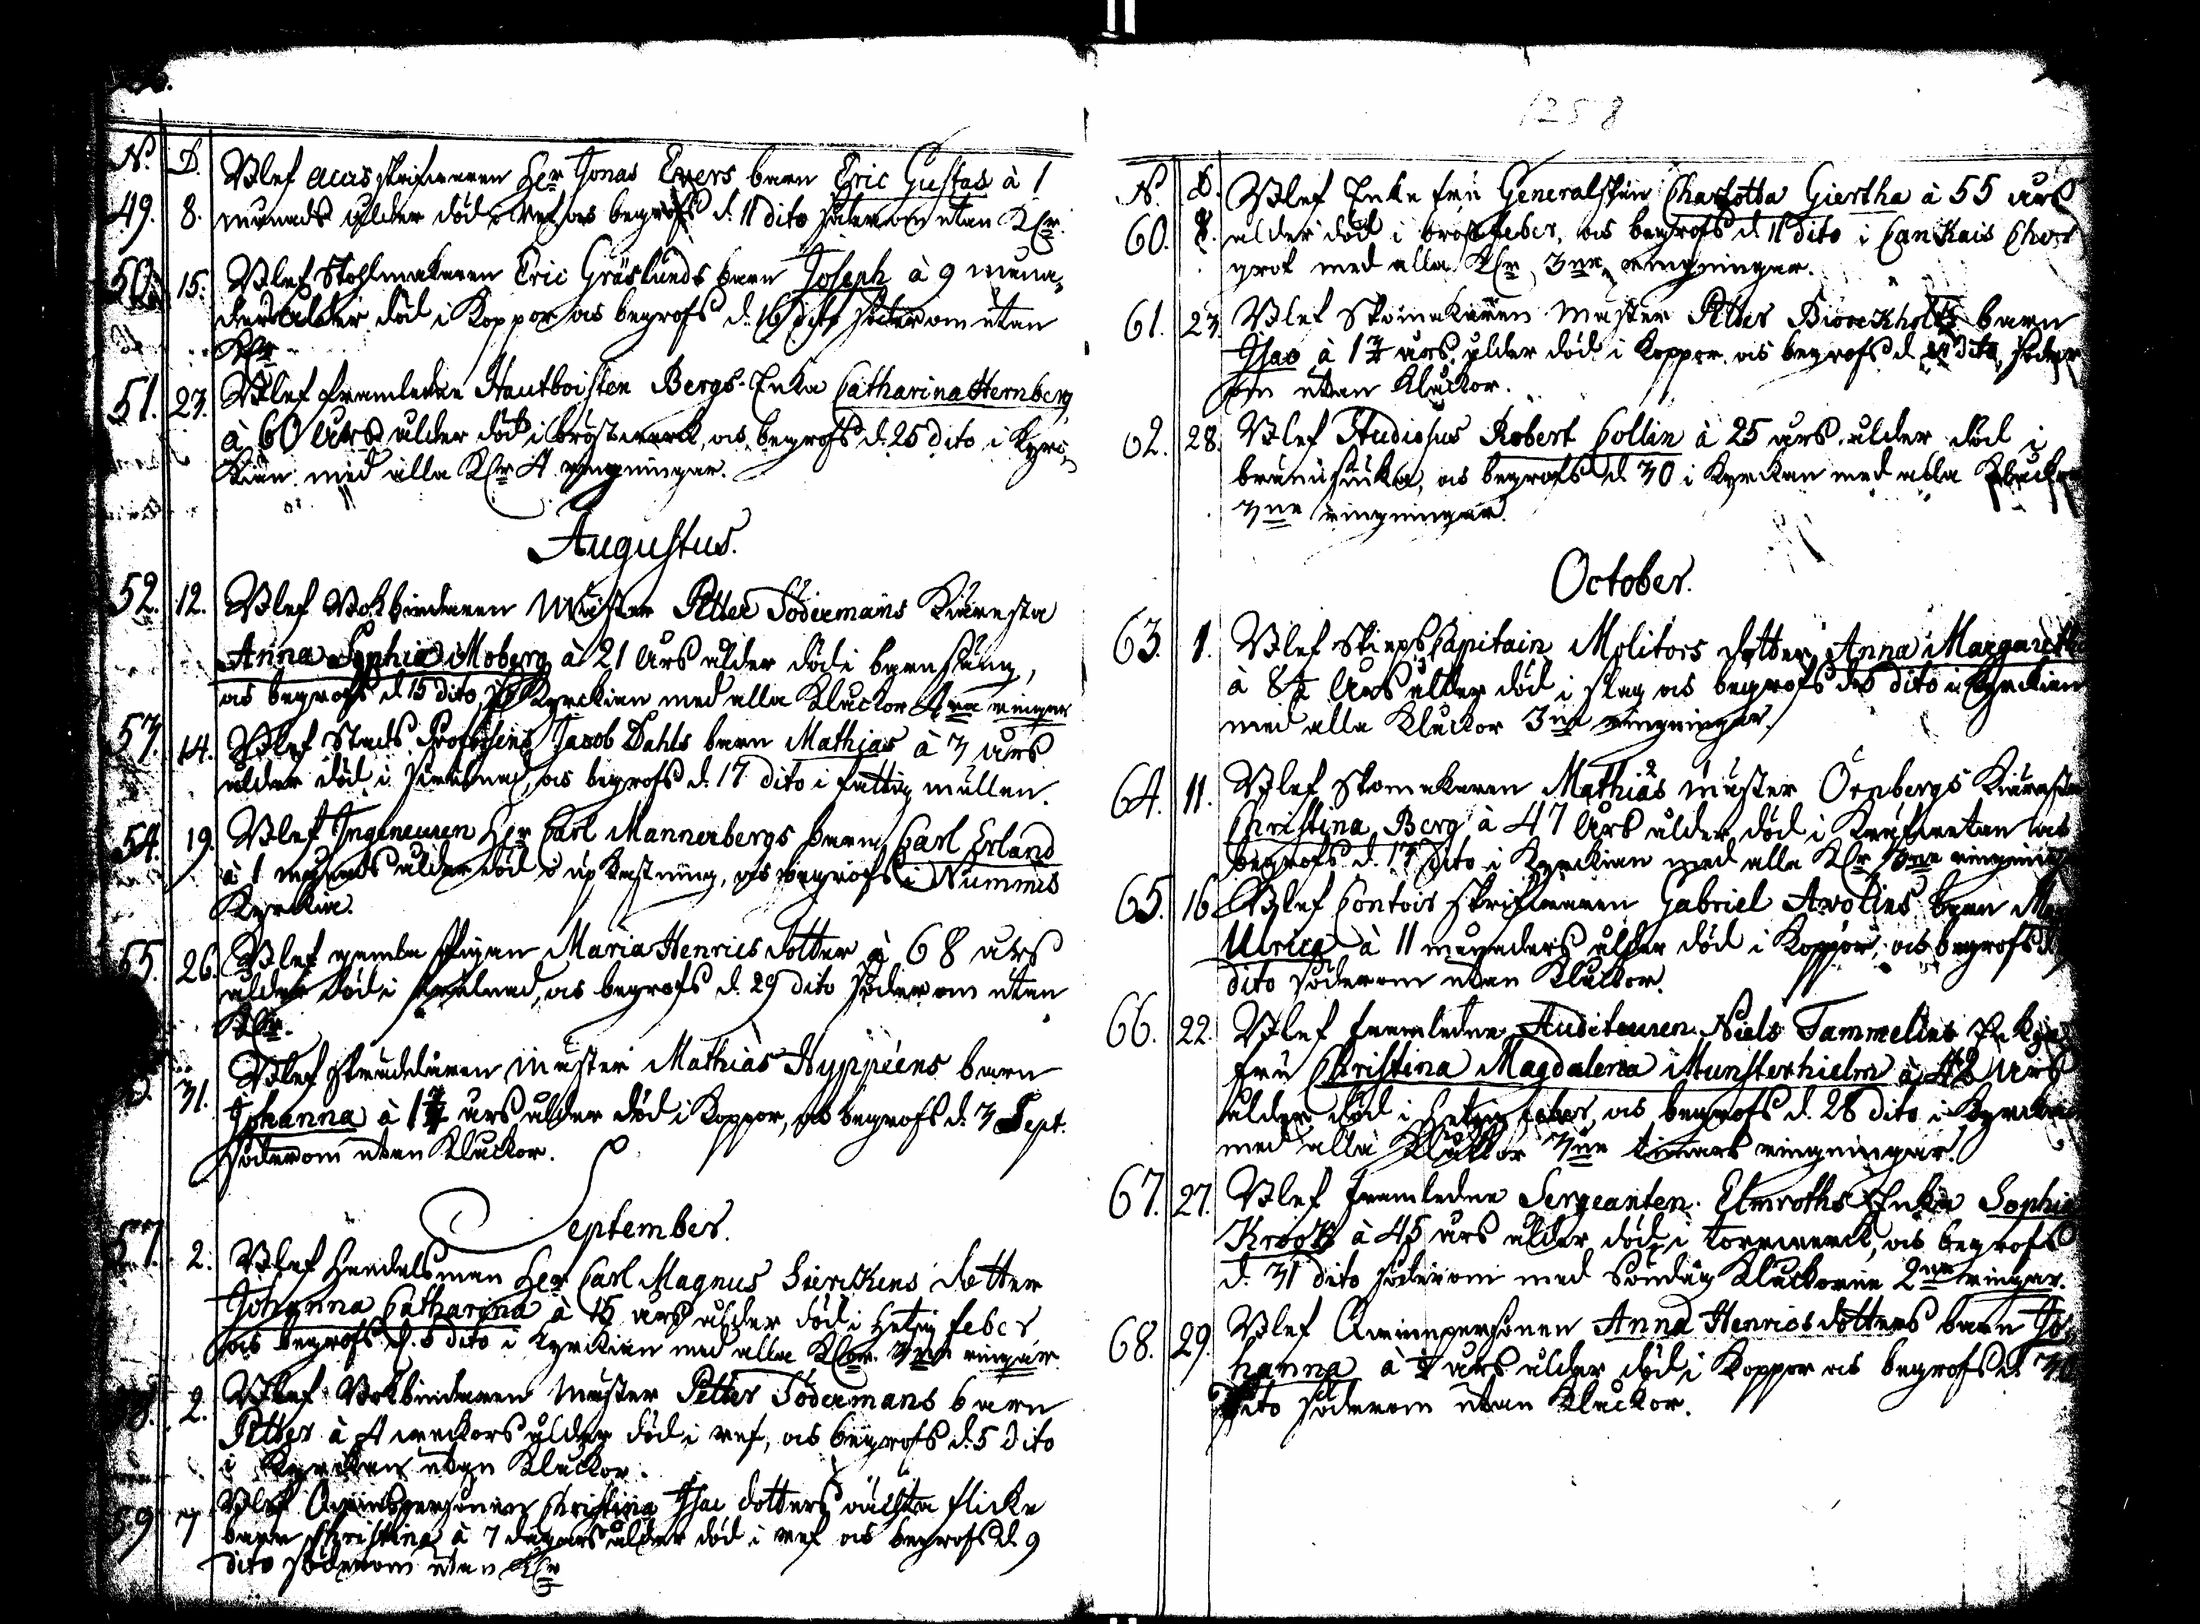 N. D.
Blef skrifwaren Her Jonas Evers barn Eric Gustaf à 1
49. 8. munads ålder död i ref, as begrofs d. 11 dito söderom utan Klr.
50. 15. Blef Stohlmakaren Eric Gräslunds barn Joseph à 9 muna,
ders ålder död i Koppor as begrofs d. 16 dito söderom utan
Klr
51. 23. Blef framledne Hautboisten Bergs Enka Catharina Hernberg
à 60 Åhrs ålder död i bröstwerck, as begrofs d. 25 dito i Kyrc
kian med alla Klr 4 ringningar.
Augustus.
52. 12. Blef Bokbindaren Mäster Petter Södermans Kiäresta
Anna Sophia Moberg à 21 Åhrs ålder död i barnsäng,
as begrofs d. 15 dito i Kyrckian med alla Kluckor ringar
53. 14. Blef Stads Profossens Jacob Dahls barn Mathias à 3 åhrs
ålder död i, as begrofs d. 17 dito i fattig mullen.
54. 19. Blef Ingenieuren Her Carl Mannerbergs barn Carl Erland
à 1 munads ålder död i upkastning, as begrofs i Nummis
Kyrckia.
55. 26. Blef gamla Pigan Maria Henrics dotter à 68 åhrs
ålder död i, as begrofs d. 29 dito söderom utan
Klr.
31. Blef Skräddaren Mäster Mathias Hyppiens barn
Johanna à 1 åhrs ålder död i Koppor, as begrofs d. 3 Sept.
söderom utan Kluckor.
September.
57. 2. Blef Handelsman Her Carl Magnus Sierckens dotter
Johanna Catharina à åhrs ålder död i Hetsig feber
as begrofs d. 5 dito i Kyrckian med alla Klr. 3ne ringar
2. Blef Bokbindaren Mäster Petter Södermans barn
Petter à 4 weckors ålder död i ref, as begrofs d. 5 dito
i Kyrckian utan Kluckor.
59 7 Blef Christina Isac dotters oächta flicke
barn Christina à 7 dagars ålder död i ref as begrofs d. 9
dito söderom utan Klr
1258
N. D. Blef Enke fru Generalskan Charlotta Giertha à 55 åhrs
60. 8. ålder död i bröst feber, as begrofs d. 11 dito i Cankais Chor
graf med alla Klr 3ne ringningar.
61. 23 Blef Skomakaren Mäster Petter Biörckholtz barn
Isac à 1 åhrs ålder död i Koppor as begrofs d. dito, söder
om utan Kluckor.
62. 28. Blef Studiosus Robert Collin à 25 åhrs ålder död i
brännsiuka, as begrofs d. 30 i Kyrckan med alla Kluckor
3ne ringningar.
October.
63. 1. Blef Skieps Capitain Molitors dotter Anna Margaretha
à 8½ Åhrs ålder död i slag as begrofs d. dito i Kyrckian
med alla Kluckor 3ne ringningar.
64. 11. Blef Skomakaren Mathias mäster Örnbergs Kiäresta
Christina Berg à 47 Åhrs ålder död i Kräfwetan as
begrofs d. 17 dito i Kyrckian med alla Klr 3ne ringning
65. 16 Blef Contoirs skrifwaren Gabriel Avolins barn
Ulrica à 11 munaders ålder död i Koppor, as begrofs d.
dito söderom utan Kluckor.
66. 22. Blef framledne Auditeuren Niels Tammelins Enkia
fru Christina Magdalena Munsterhielm à 42 åhrs
ålder död i Hetsig feber, as begrofs d. 28 dito i Kyrckian
med alla Kluckor 3ne timars ringningar.
67. 27. Blef framledne Sergeanten Elmroths Enkia Sophia
Krook à 45 åhrs ålder död i torrwerck, as begrofs
d. 31 dito söderom med Söndag Kluckorne 2ne ringar.
68. 29. Blef Qwinspersonen Anna Henrics dotters barn Jo,
hanna à åhrs ålder död i Koppor as begrofs d. 30
dito söderom utan Kluckor.